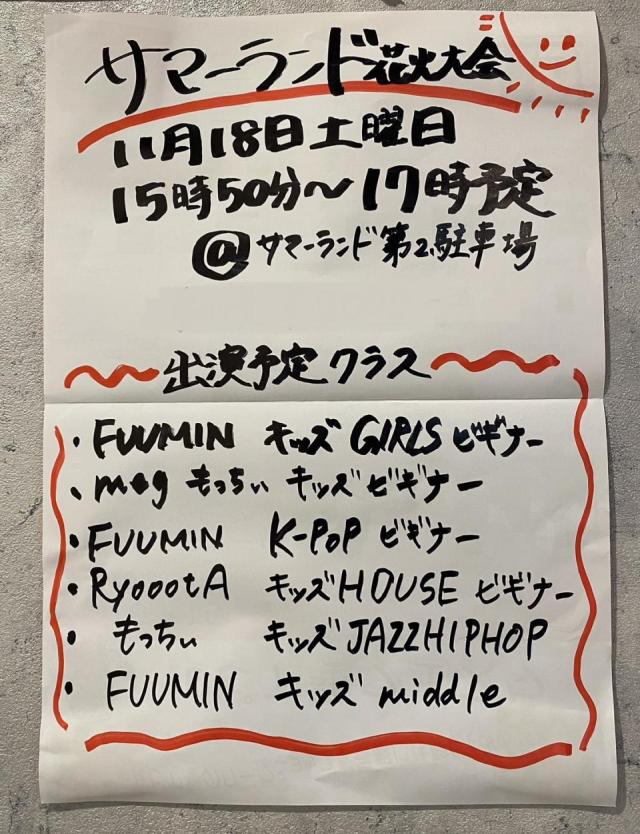 サマーランド花火大会
11月18日土曜日
15時50分〜17時予定
@サマーランド第2駐車場
出演予定クラス
・FUUMIN キッズ GIRLS ビギナー
・meg もっちぃ キッズ ビギナー
・FUUMIN K-POP ビギナー
・RyoootA キッズHOUSE ビギナー
・もっちぃ キッズJAZZHIPHOP
・FUUMIN キッズ middle